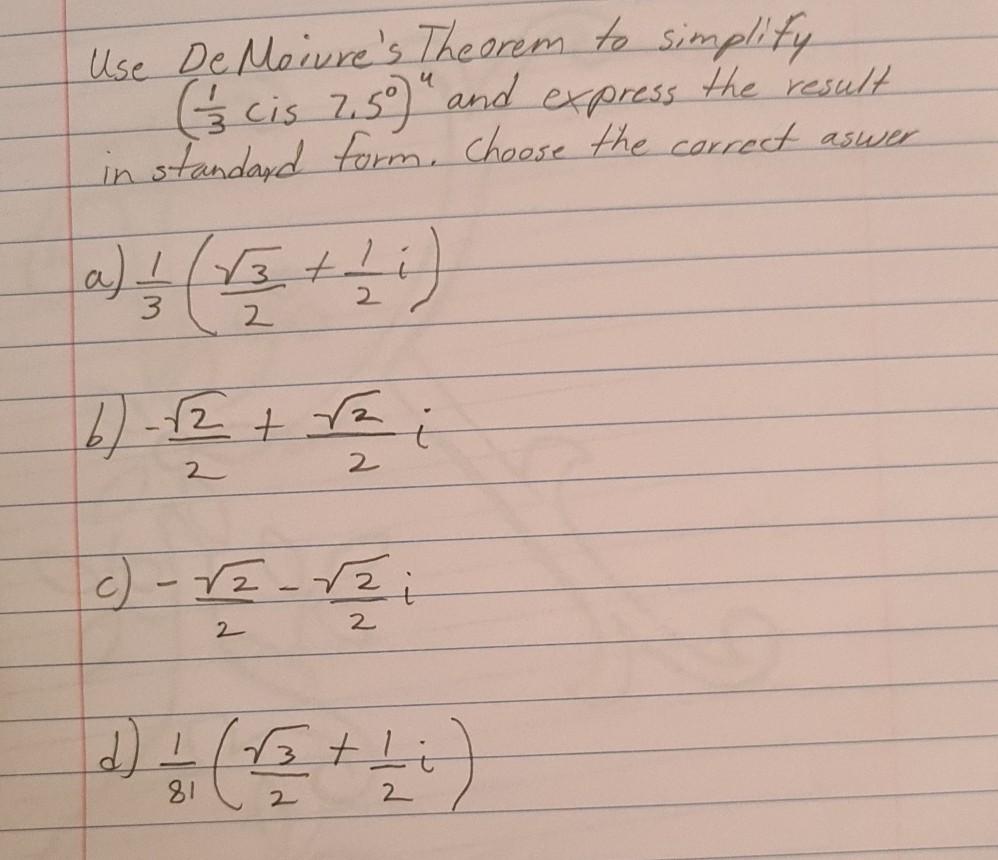 Use DeMoivre's Theorem to simplify
(1/3 cis 7.5°)^4 and express the result
in standard form. Choose the correct aswer
a) 1/3 (√3/2 + 1/2 i)
b) -√2/2 + √2/2 i
c) - √2/2 - √2/2 i
d) 1/81 (√3/2 + 1/2 i)